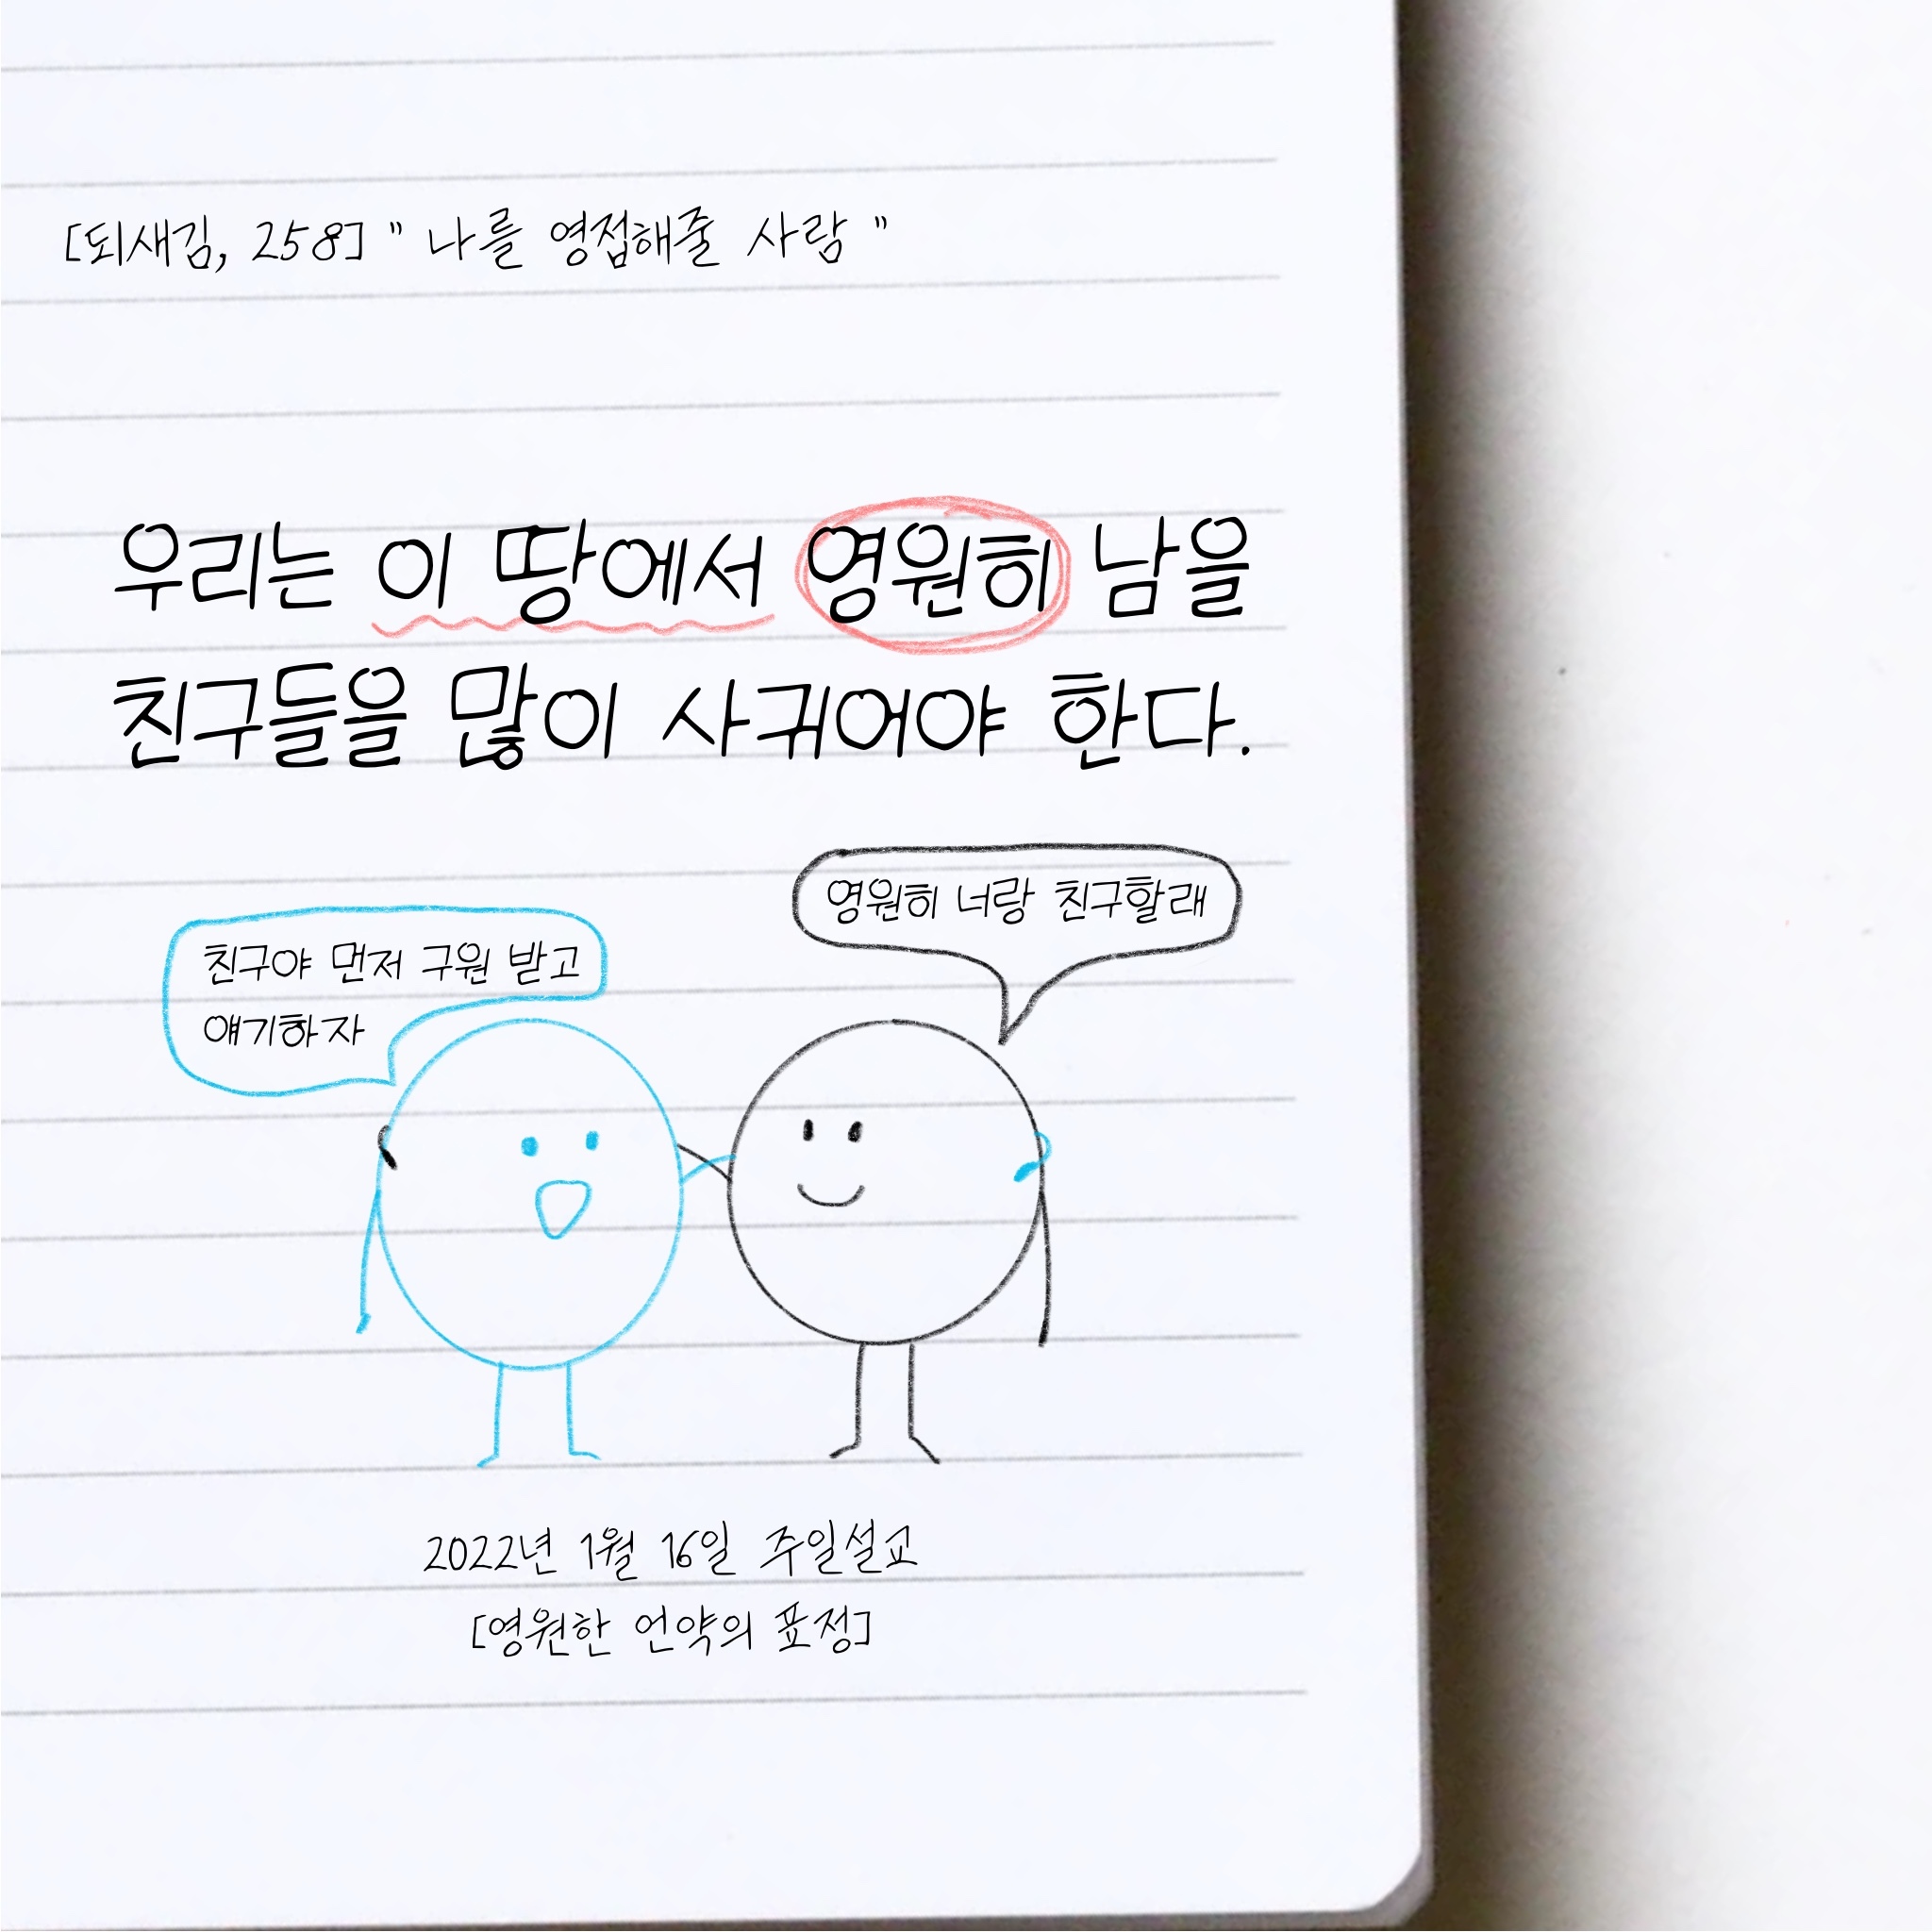 [되새김, 258] " 나를 영접해줄 사람 "
우리는 이 땅에서 영원히 남을
친구들을 많이 사귀어야 한다.
영원히 너랑 친구할래
친구야 먼저 구원 받고
얘기하자
2022년 1월 16일 주일설교
[영원한 언약의 표정]